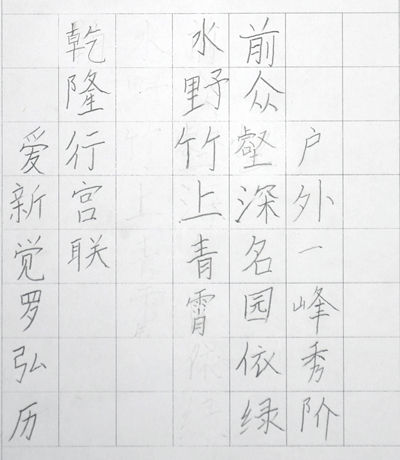 户外一峰秀阶
前众壑深名园依绿
水野竹上青霄
乾隆行宫联
爱新觉罗弘历